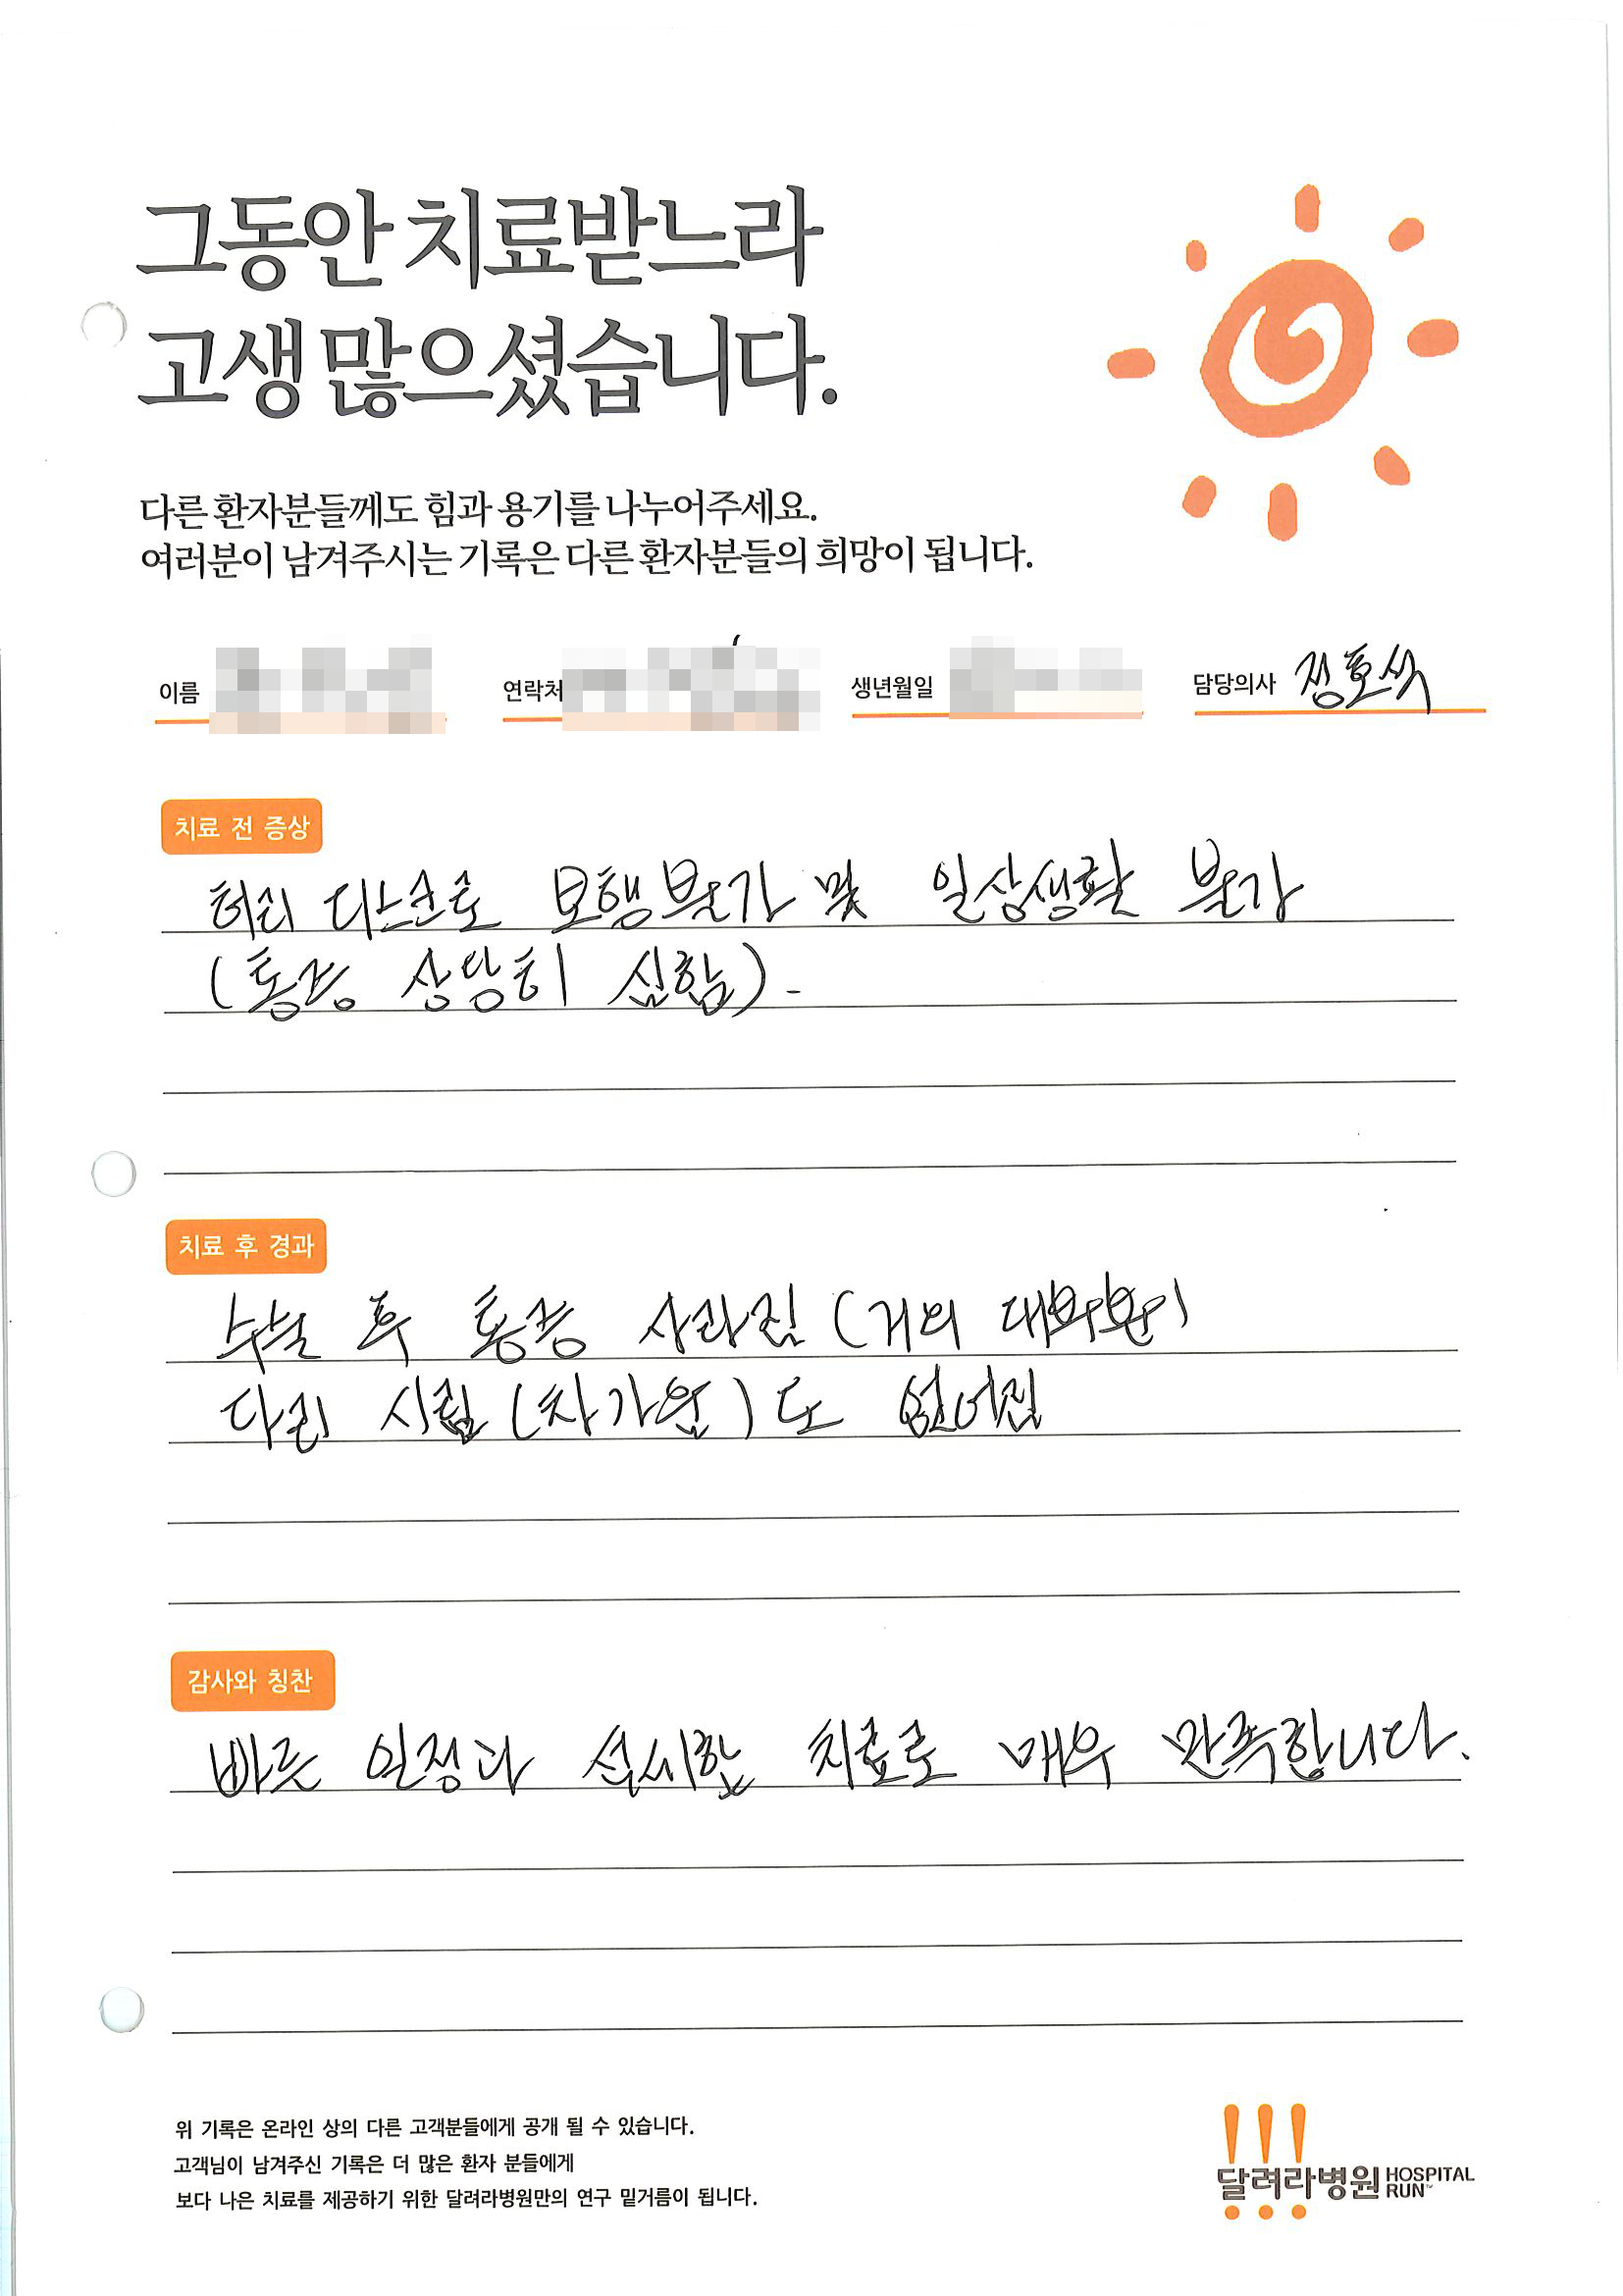 그동안 치료받느라
고생 많으셨습니다.
다른 환자분들께도 힘과 용기를 나누어주세요.
여러분이 남겨주시는 기록은 다른 환자분들의 희망이 됩니다.
이름 연락처 생년월일 담당의사 정호석
치료 전 증상
허리 디스크로 보행불가 및 일상생활 불가
(통증 상당히 심함).
치료 후 경과
수술 후 통증 사라짐 (거의
다리 시림 (차가움)도 없어짐
감사와 칭찬
빠른 일정과 섬세한 치료로 매우 만족합니다.
위 기록은 온라인 상의 다른 고객분들에게 공개 될 수 있습니다.
고객님이 남겨주신 기록은 더 많은 환자 분들에게
보다 나은 치료를 제공하기 위한 달려라병원만의 연구 밑거름이 됩니다.
달려라병원 HOSPITAL RUN